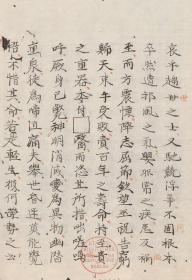 哀乎趨世之士又馳競浮華不固根本
卒然遭邪風之氣嬰非常之疾患及禍
至而方震慄降志屈節欽望巫祝告窮
歸天束手受敗賷百年之壽命持至貴
之重器委付庸醫恣其所措咄嗟嗚
呼厥身已斃神明消滅變為異物幽潛
重泉徒為啼泣痛夫舉世昏迷莫能覺
悟不惜其命若是輕生彼何榮勢之